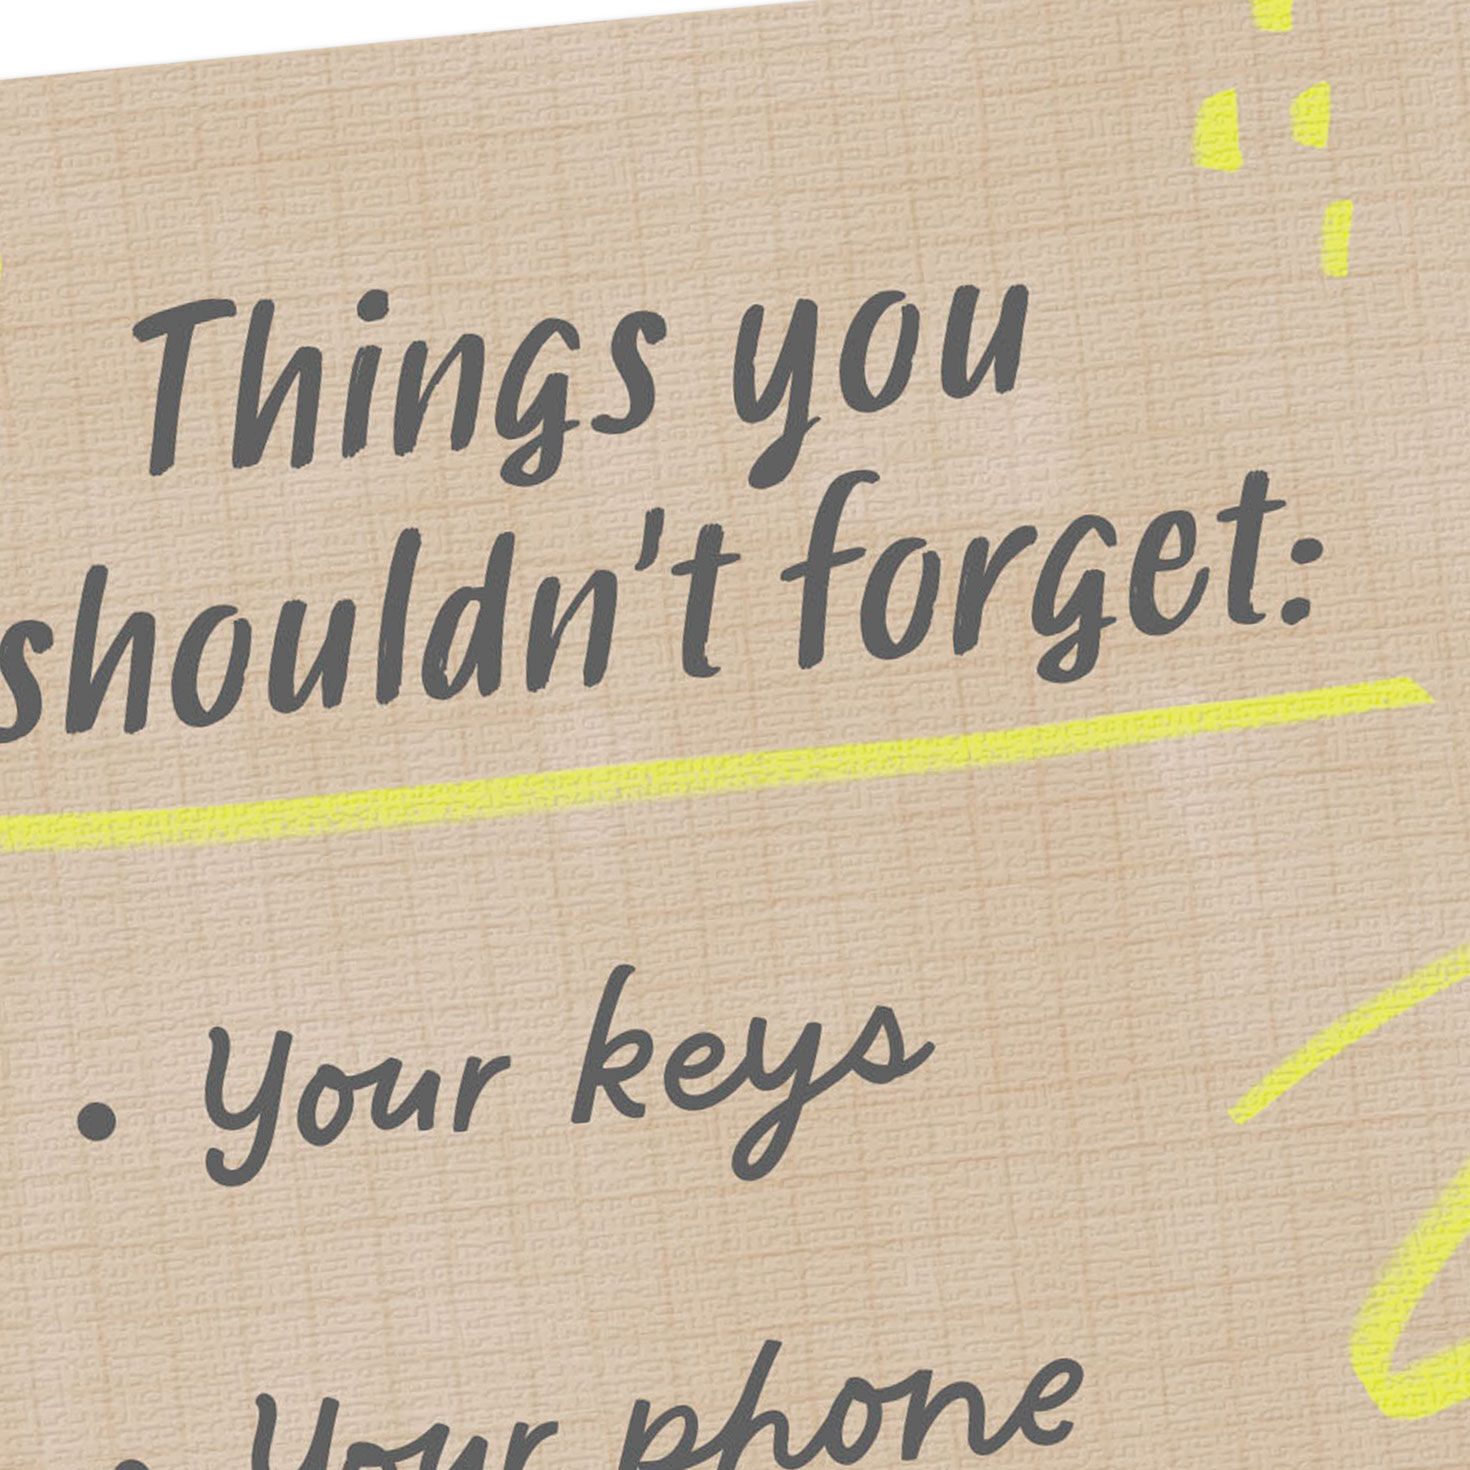 Things you
shouldn't forget:
• Your keys
• Your phone